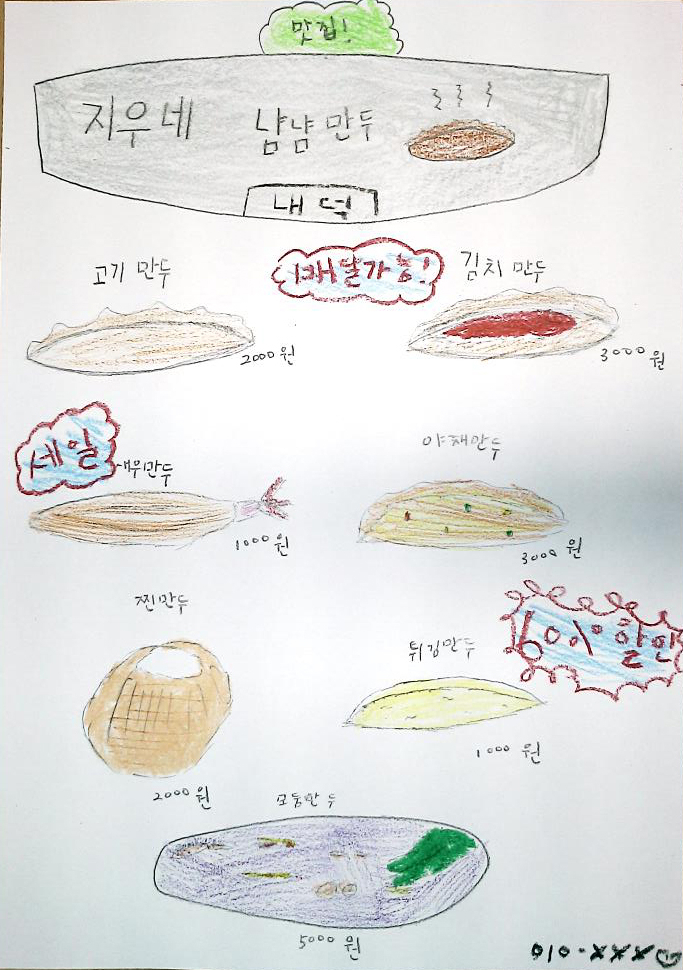 맛집!
지우네 냠냠만두
내덕
고기 만두
배달가능!
김치 만두
2000원
3000원
세일
새우만두
야채만두
1000원
3000원
찐만두
60% 할인
튀김만두
1000원
2000원
모둠만두
5000원
010-XXX-